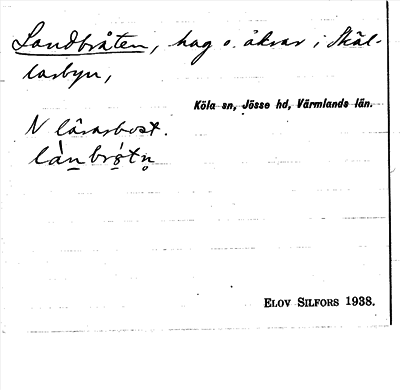 Landbråten, hag o. åkrar i Skäl-
larbyn,
Köla sn, Jösse hd, Värmlands län.
N lärarbost.
ELOV SILFORS 1938.